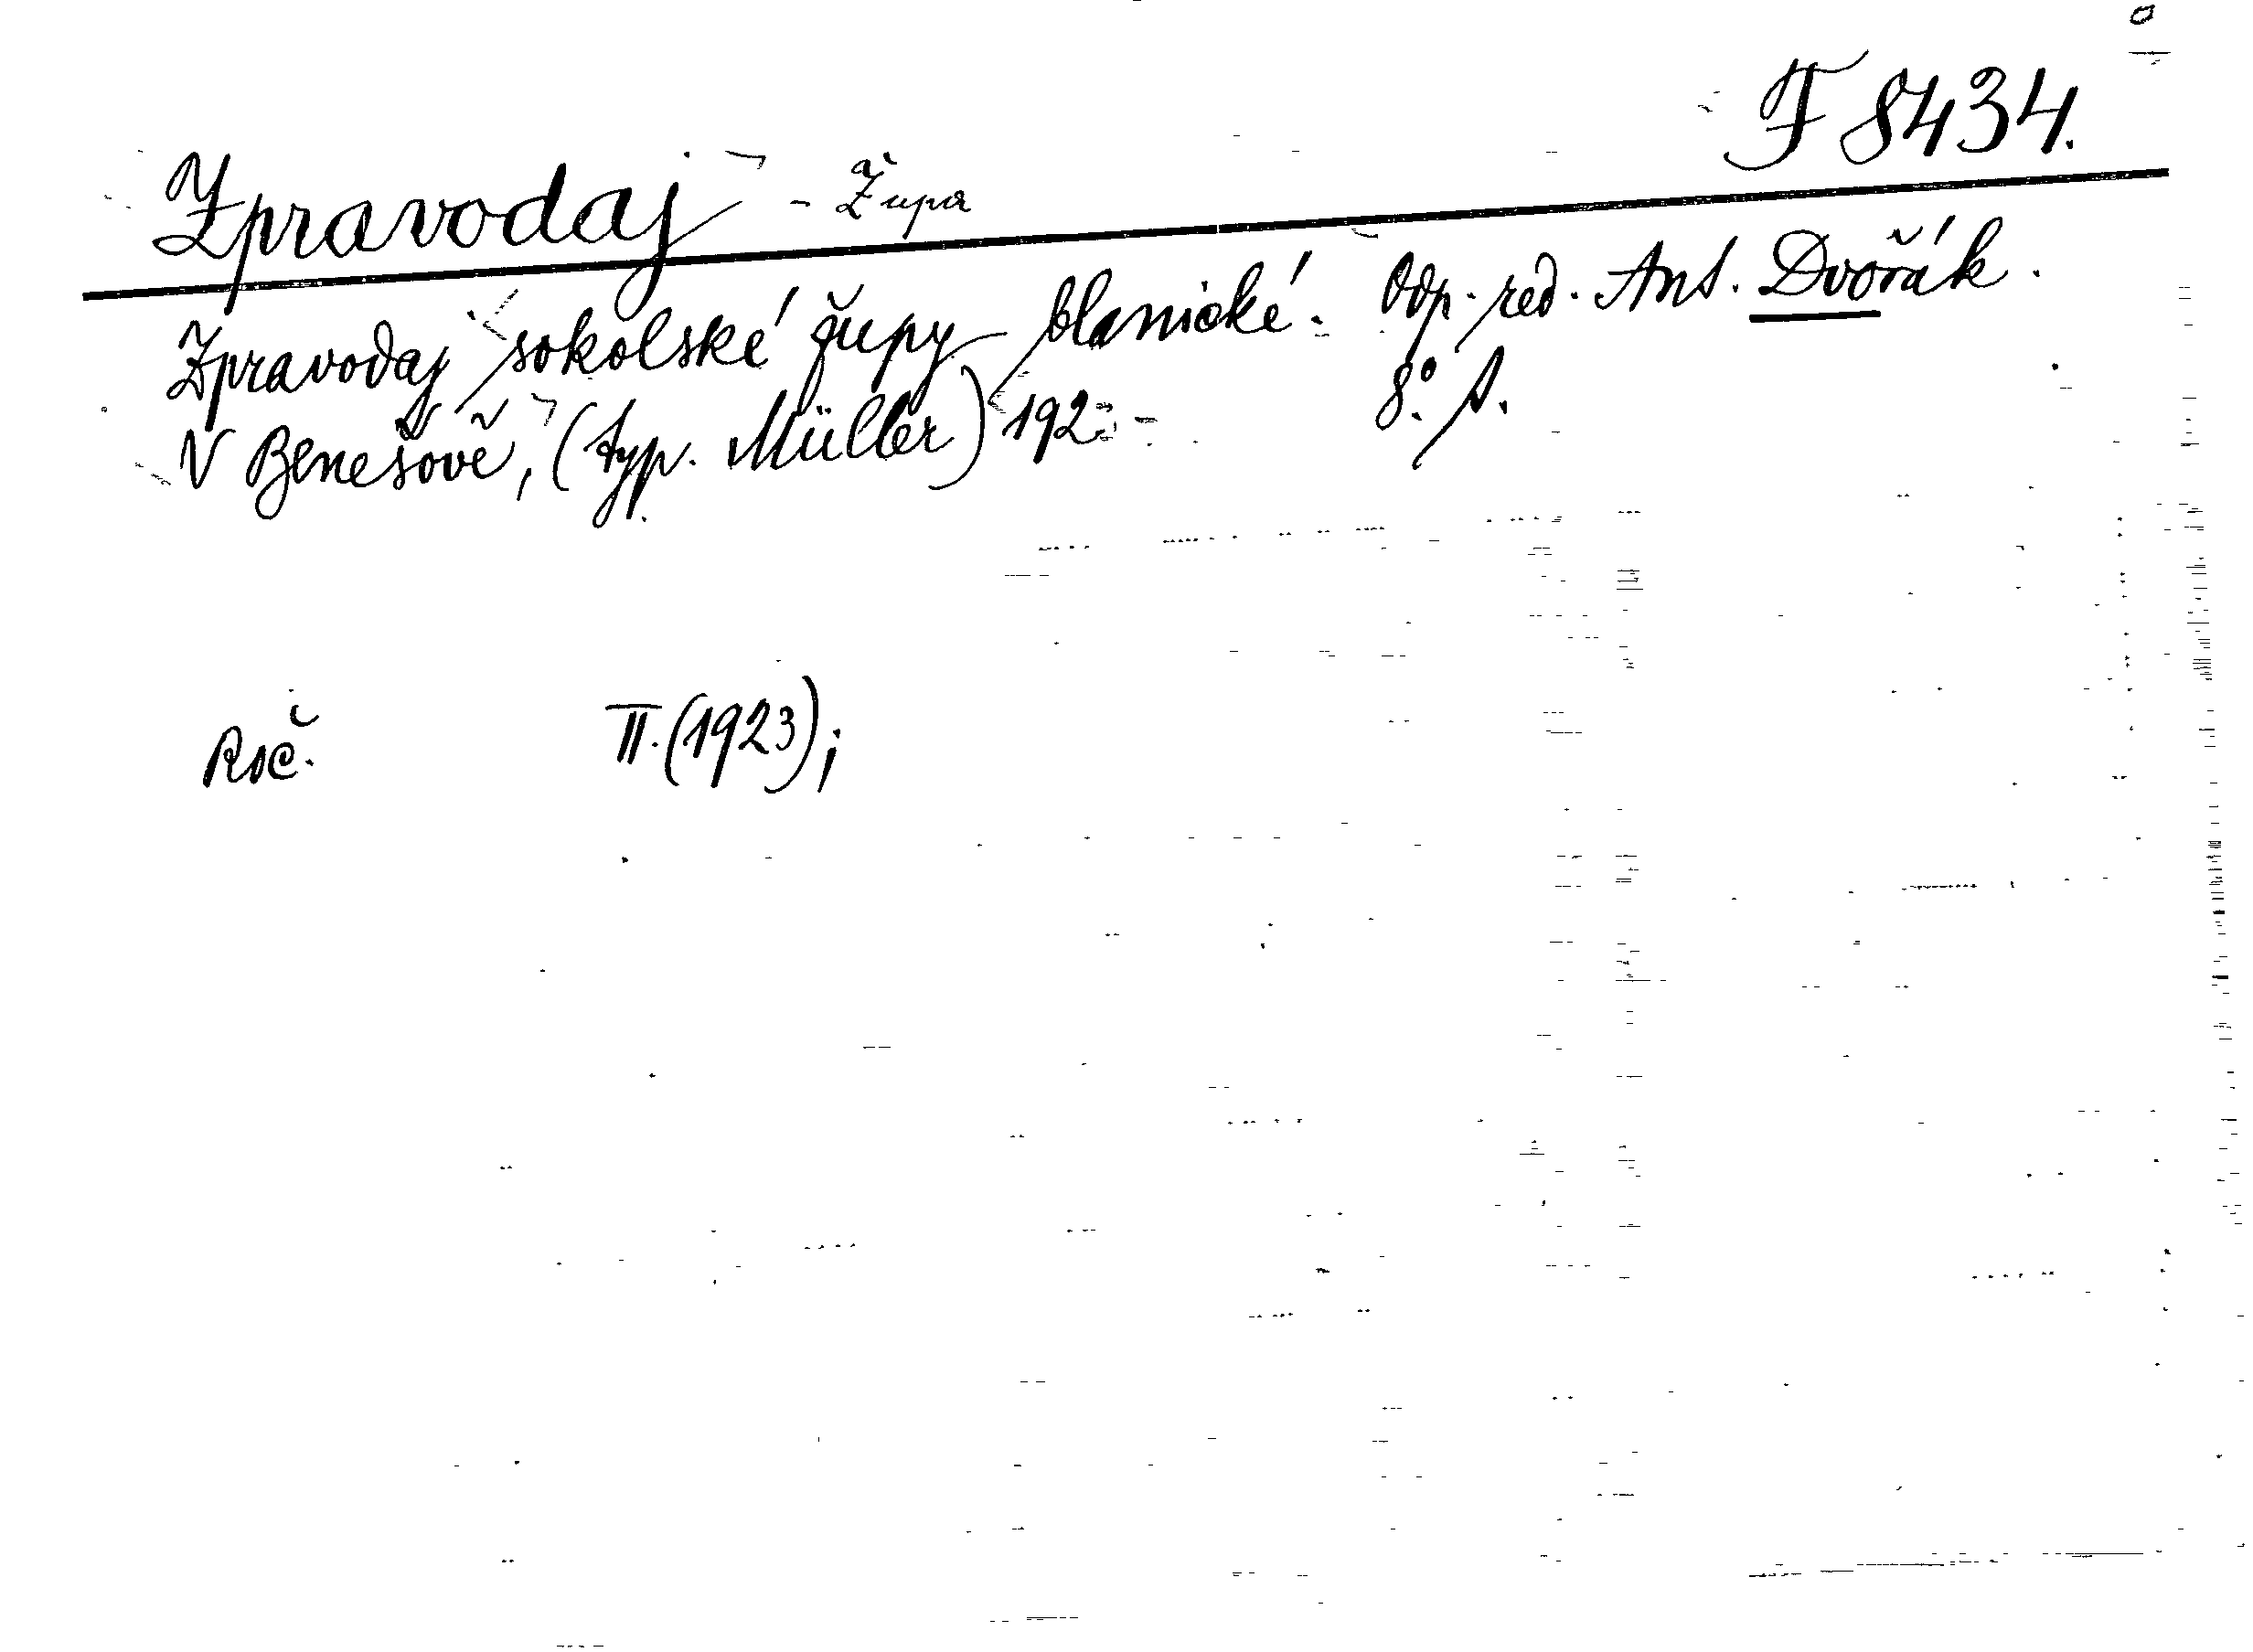 F 8434.
Zpravodaj - Župa
Zpravodaj sokolské župy blanické. Odp. red. Ant. Dvořák.
V Benešově, (typ. Müller) 192 - 8°.
Roč. II. (1923);